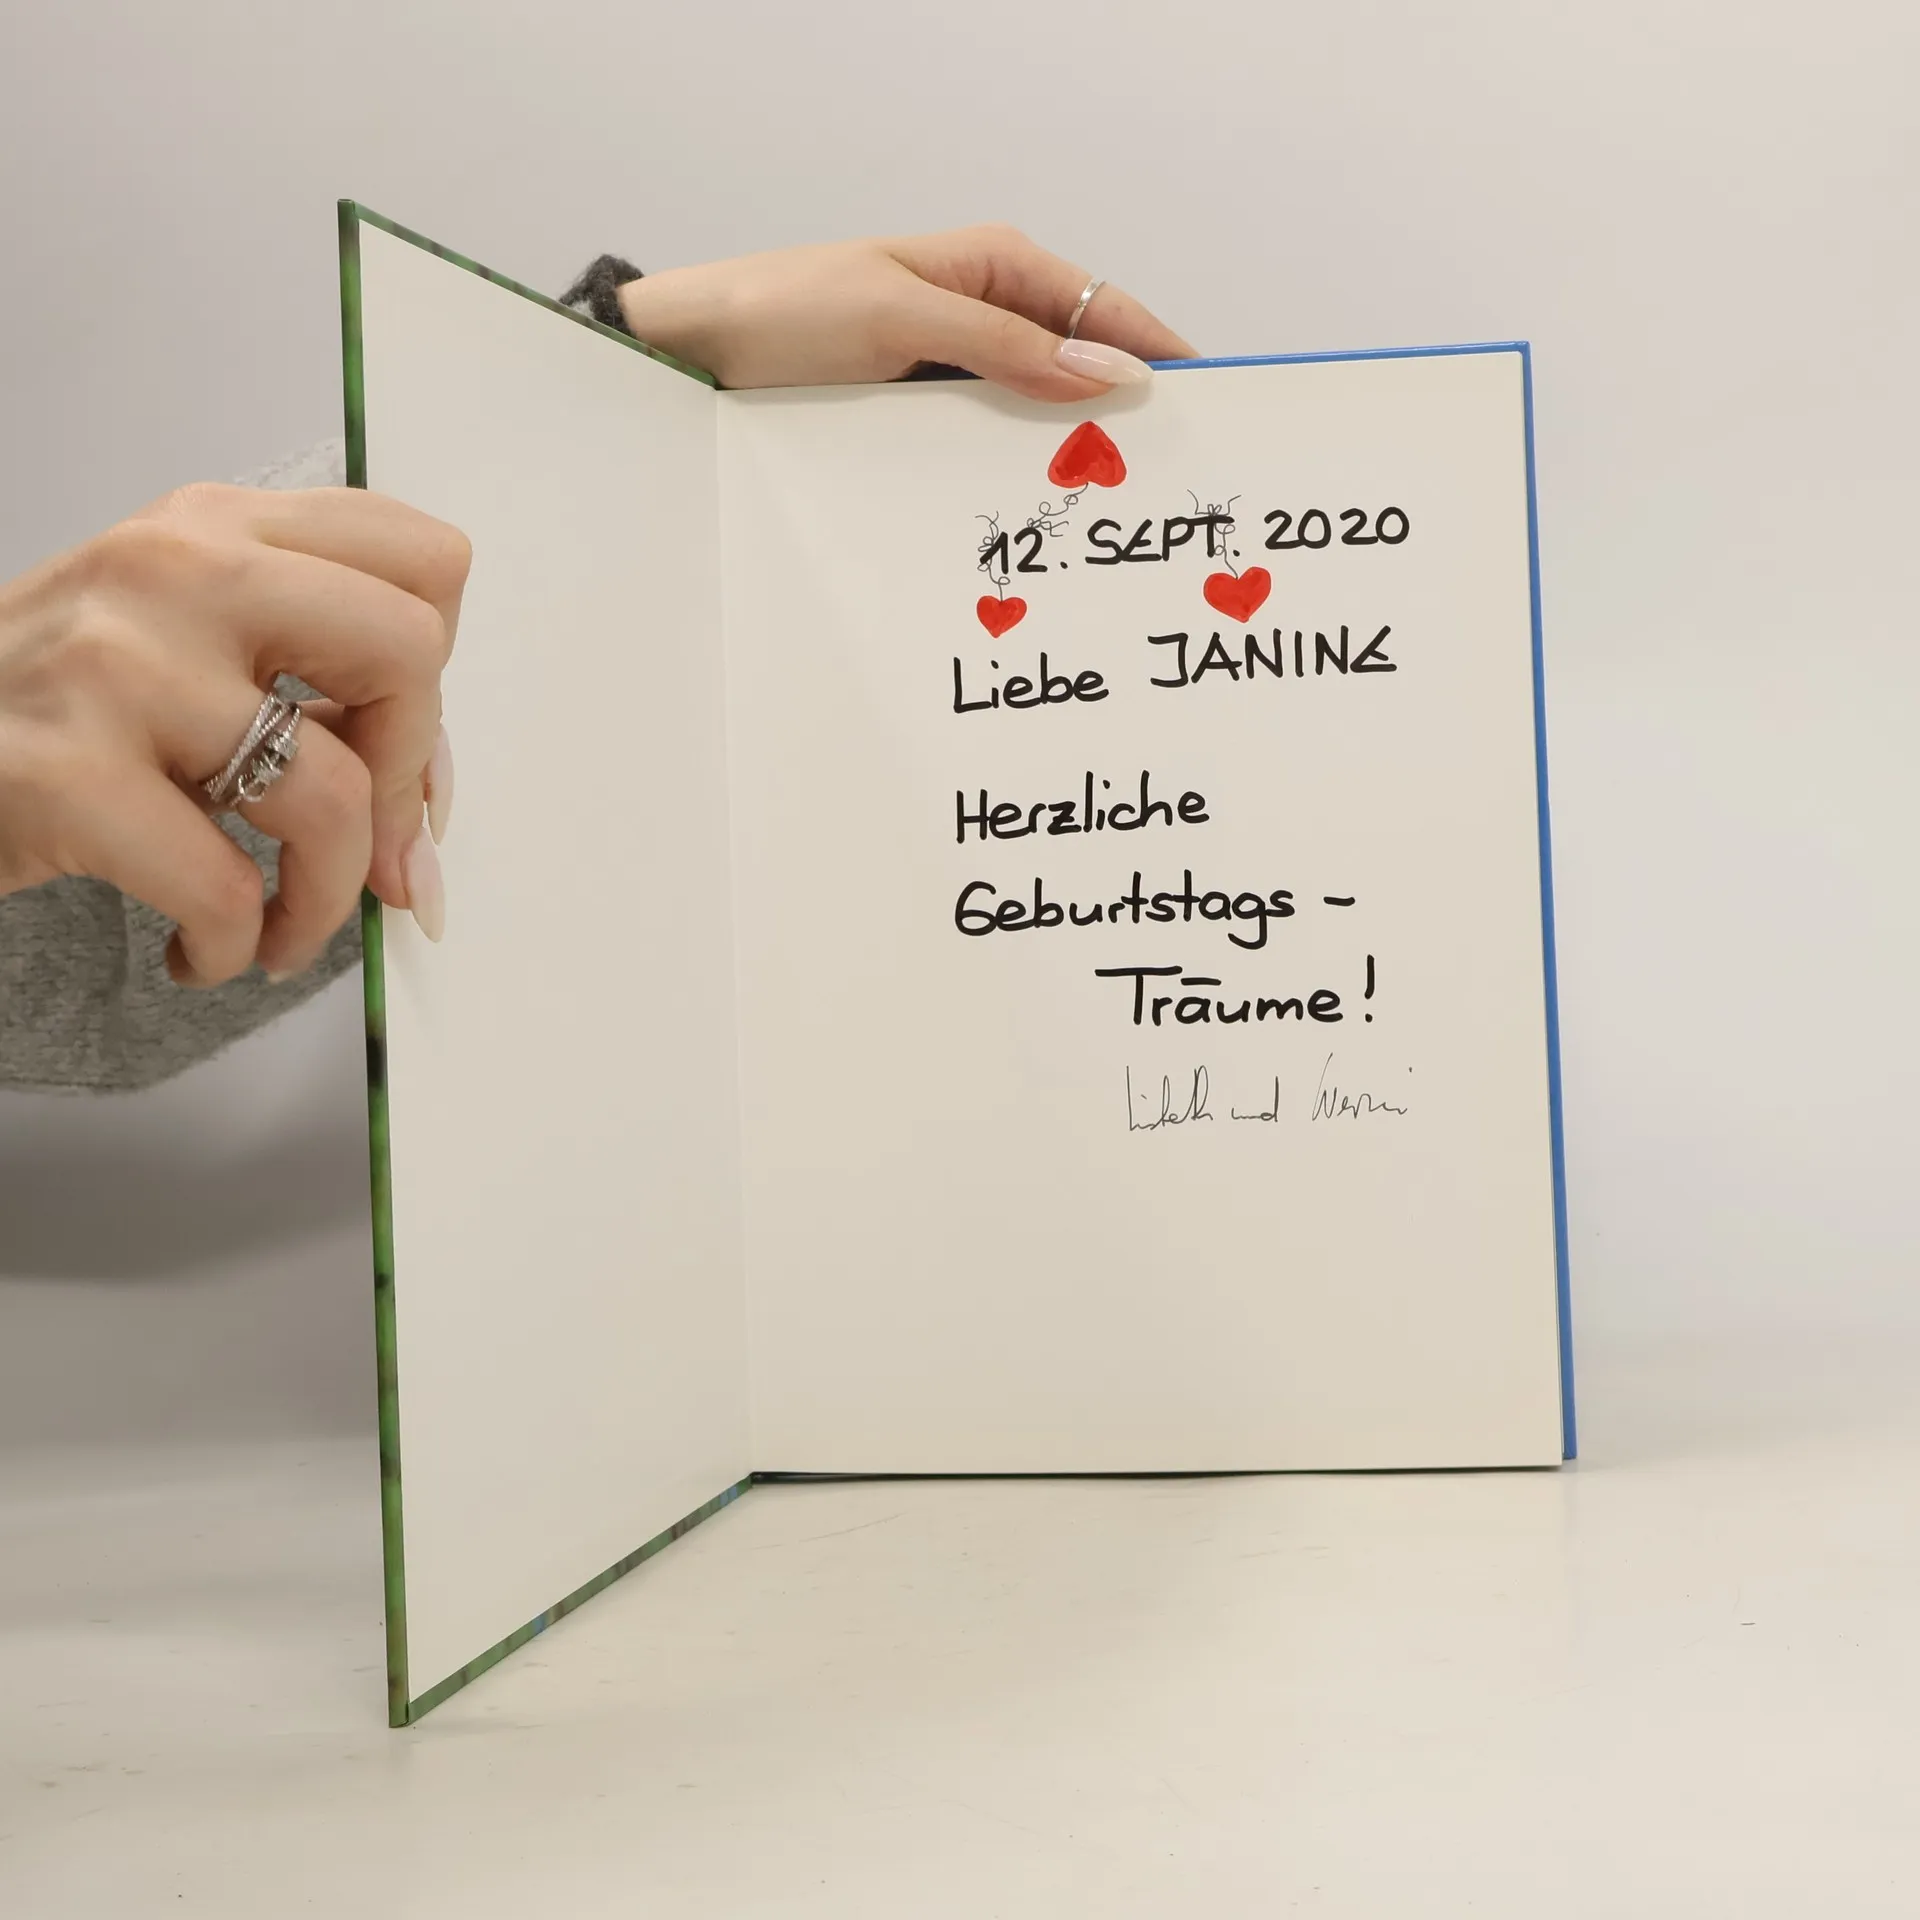 12. SEPT. 2020
Liebe JANINE
Herzliche
Geburtstags -
Träume!
Lisbeth und